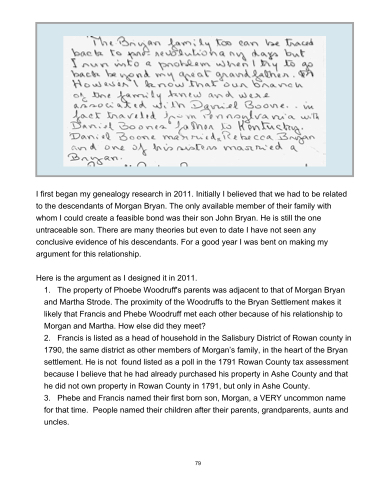 The Bryan family too can be traced
back to pre-revolutionary days but
I run into a problem when I try to go
back beyond my great grandfather.
However I know that our branch
of the family knew and were
associated with Daniel Boone.. in
fact traveled from Pennsylvania with
Daniel Boone's father to Kentucky.
Daniel Boone married Rebecca Bryan
and one of his sisters married a
Bryan.
I first began my genealogy research in 2011. Initially I believed that we had to be related
to the descendants of Morgan Bryan. The only available member of their family with
whom I could create a feasible bond was their son John Bryan. He is still the one
untraceable son. There are many theories but even to date I have not seen any
conclusive evidence of his descendants. For a good year I was bent on making my
argument for this relationship.
Here is the argument as I designed it in 2011.
1. The property of Phoebe Woodruff's parents was adjacent to that of Morgan Bryan
and Martha Strode. The proximity of the Woodruffs to the Bryan Settlement makes it
likely that Francis and Phebe Woodruff met each other because of his relationship to
Morgan and Martha. How else did they meet?
2. Francis is listed as a head of household in the Salisbury District of Rowan county in
1790, the same district as other members of Morgan's family, in the heart of the Bryan
settlement. He is not found listed as a poll in the 1791 Rowan County tax assessment
because I believe that he had already purchased his property in Ashe County and that
he did not own property in Rowan County in 1791, but only in Ashe County.
3. Phebe and Francis named their first born son, Morgan, a VERY uncommon name
for that time. People named their children after their parents, grandparents, aunts and
uncles.
79